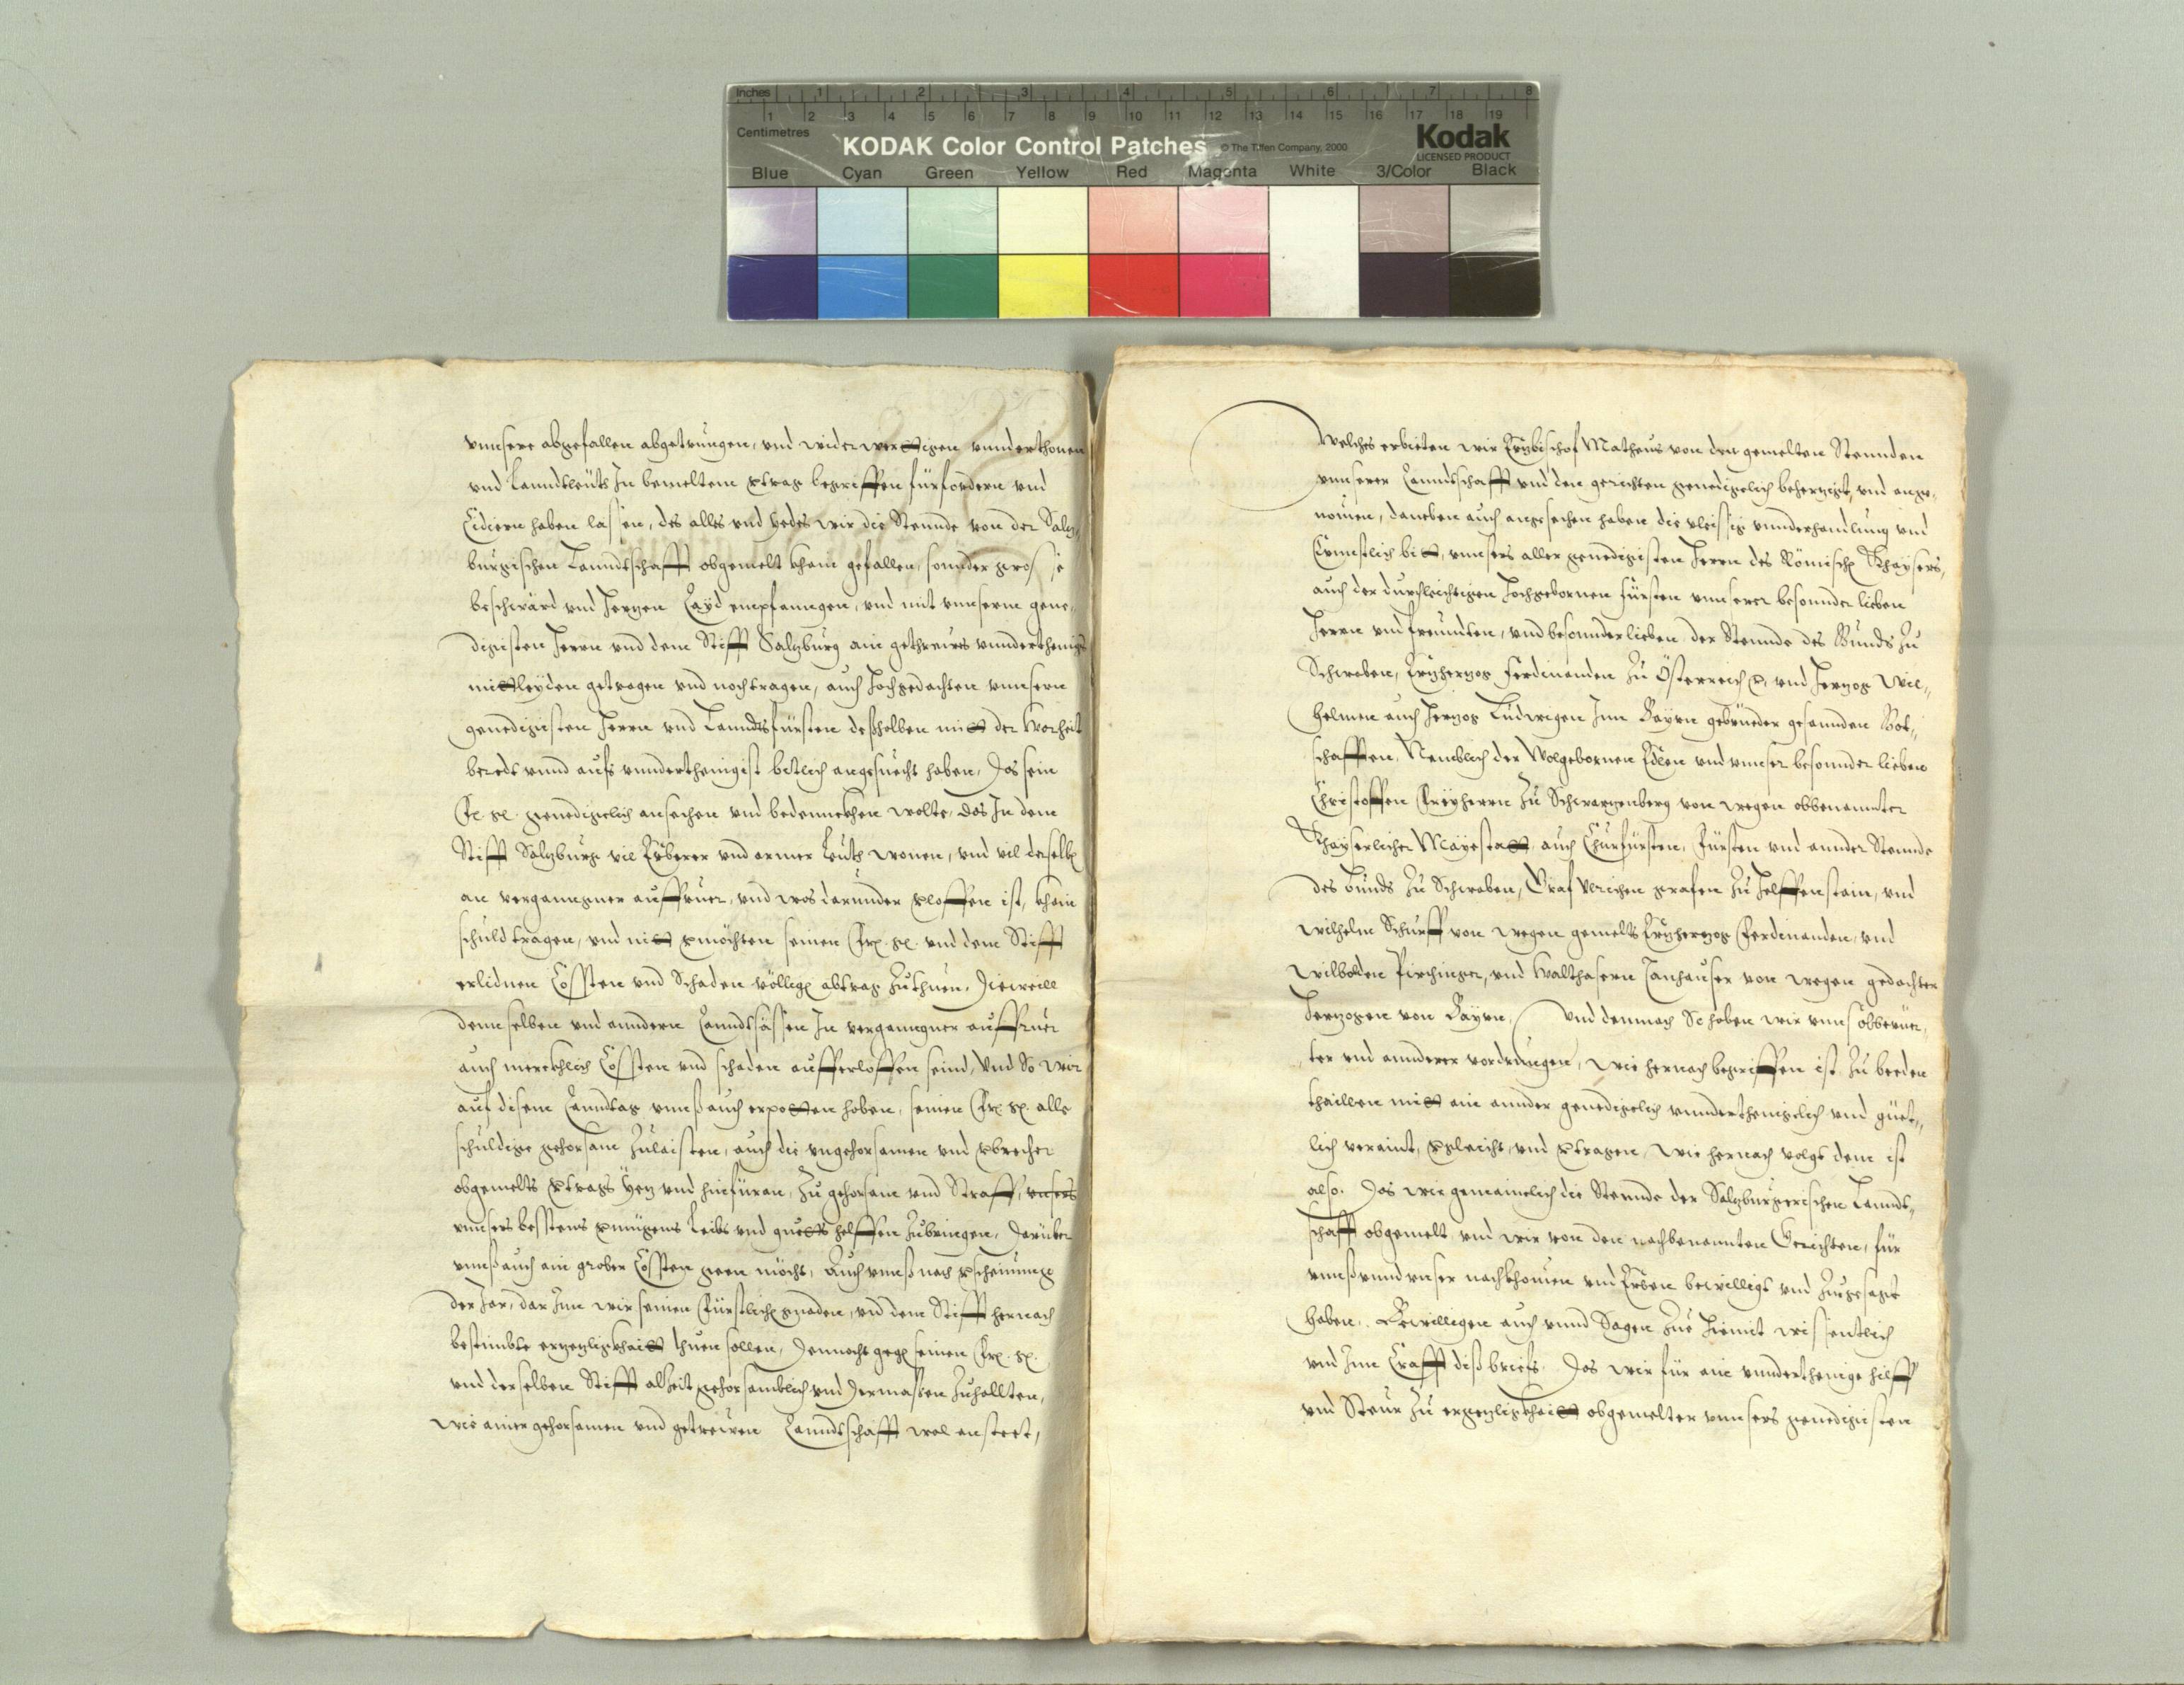 Inches 1 2 3 4 5 6 7 8
1 2 3 4 5 6 7 8 9 10 11 12 13 14 15 16 17 18 19
Centimetres
KODAK Color Control Patches © The Tiffen Company, 2000 Kodak
LICENSED PRODUCT
Blue Cyan Green Yellow Red Magenta White 3/Color Black
vnnsere abgefallen abgetrungen, vnd widerwerttigen vnnderthonen
vnd Lanndtleüt In bemeltem vertrag begriffen fürfordern vnd
Citiern haben lassen, des alles vnd yedes wir die Stennde von der Saltz„
burgischen Lanndtschafft obgemelt khein gefallen, sonnder grosse
beschwärd vnd Hertzen Layd empfanngen, vnd mit vnnserm gene„
digisten Herrn vnd dem Stifft Saltzburg ain gethreües vnnderthenigs
mitleyden getragen vnd noch tragen, auch Hochgedachten vnnsern
genedigisten Herrn vnd Lanndtsfürsten desshalben mit der Worheit
beredt vnnd aufs vnnderthenigist bitlich angesuecht haben, Das sein
Fr. G. genedigelich ansechen vnd bedennckhen wolte, das In dem
Stifft Saltzburg vil Erberer vnd armer Leüt wonen, vnd vil derselben
an verganngner auffruer, vnd was darunder verloffen ist, khain
schuld tragen, vnd nit vermöchten seinen Fr. G. vnd dem Stifft
erlidnen Cossten vnd Schaden völligen abtrag zuthuen, Dieweill
demselben vnd anndern Lanndtsässen In verganngner auffruer
auch merckhlich Cossten vnd schaden aufferloffen seind, Vnd So wir
auf disem Lanndtag vnnss auch erpotten haben, seinen Fr. G. alle
schuldige gehorsam zulaisten, auch die vngehorsamen vnd verbrecher
obgemelts vertrags yetz vnd hinfüran, zu gehorsam vnd Straff, vnsers
vnnsers besstens vermügens Leibs vnd guetts helffen zubringen, Darüber
vnnss auch ain grober Cossten geen möcht, Auch vnnss nach verscheinung
der Jar, dar Inn wir seinen Fürstlichen gnaden, vnd dem Stifft hernach
bestimbte ergetzligkhait thuen sollen, Dennocht gegen seinen Fr. G.
vnd derselben Stifft alzeit gehorsamblich vnd dermassen zuhallten,
wie ainer gehorsamen vnd getrewen Lanndtschafft wol ansteet,
Welches erbieten wir Ertzbischof Matheus von den gemelten Stennden
vnnserer Lanndtschafft vnd den gerichten genedigelich behertzigt, vnd ange„
nomen, daneben auch angesechen haben die vleissig vnnderhandlung vnd
Ernnstlich bitt, vnnsers aller genedigisten Herrn des Römischen Khaysers,
auch der durchleichtigen Hochgebornen fürsten vnnserer besonnder lieben
Herrn vnd freunten, vnd besonnderlieben der Stennde des Bunds zu
Schwaben, Ertzhertzog Ferdinanden zu Österreich etc, vnd Hertzog Wil„
helmen auch Hertzog Ludwigen Inn Bayrn gebrüeder gesannden Bot„
schafften, Nemblich der Wolgebornen Edlen vnd vnnser besonnder lieben
Christoffen Freyherrn zu Schwartzenberg von wegen obbenannter
Khayserlicher Mayestatt auch Churfürsten, Fürsten vnd annder Stennde
des Bunds zu Schwaben, Graf Vlrichen grafen zu Helffenstain, vnd
Wilhelm Schurff von wegen gemelts Ertzhertzog Ferdinanden, vnd
Wilbolden Pirchinger, vnd Walthasern Tanhauser von wegen gedachter
Hertzogen von Bayrn, Vnd demnach So haben wir vnns obberüer„
ter vnd annderer vordrungen, wie hernach begriffen ist, zu beeden
thaillen mit ain annder genedigelich vnnderthenigelich vnd güet„
lich veraint, vergleicht, vnd vertragen, wie hernach volgt dem ist
also. Das wir gemainelich die Stennde der Saltzburgerischen Lanndt„
schafft obgemelt, vnd wir von den nachbenannten Gerichten, für
vnnss vnnd vnnser nachkhomen vnd Erben bewilligt vnd zuegesagt
haben. Bewilligen auch vnnd Sagen zue hiemit wissentlich
vnd Inn Crafft diss briefs. Das wir für ain vnnderthenige hilff
vnd Steur zu ergetzligkhait obgemelter vnnsers genedigisten